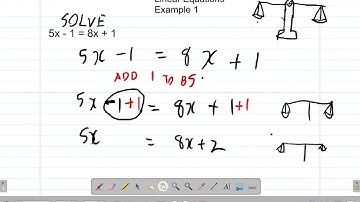 Linear Equations
Example 1
SOLVE
5x - 1 = 8x + 1
5x - 1 = 8x + 1
ADD 1 TO BS.
5x -1 +1 = 8x + 1 +1
5x = 8x + 2